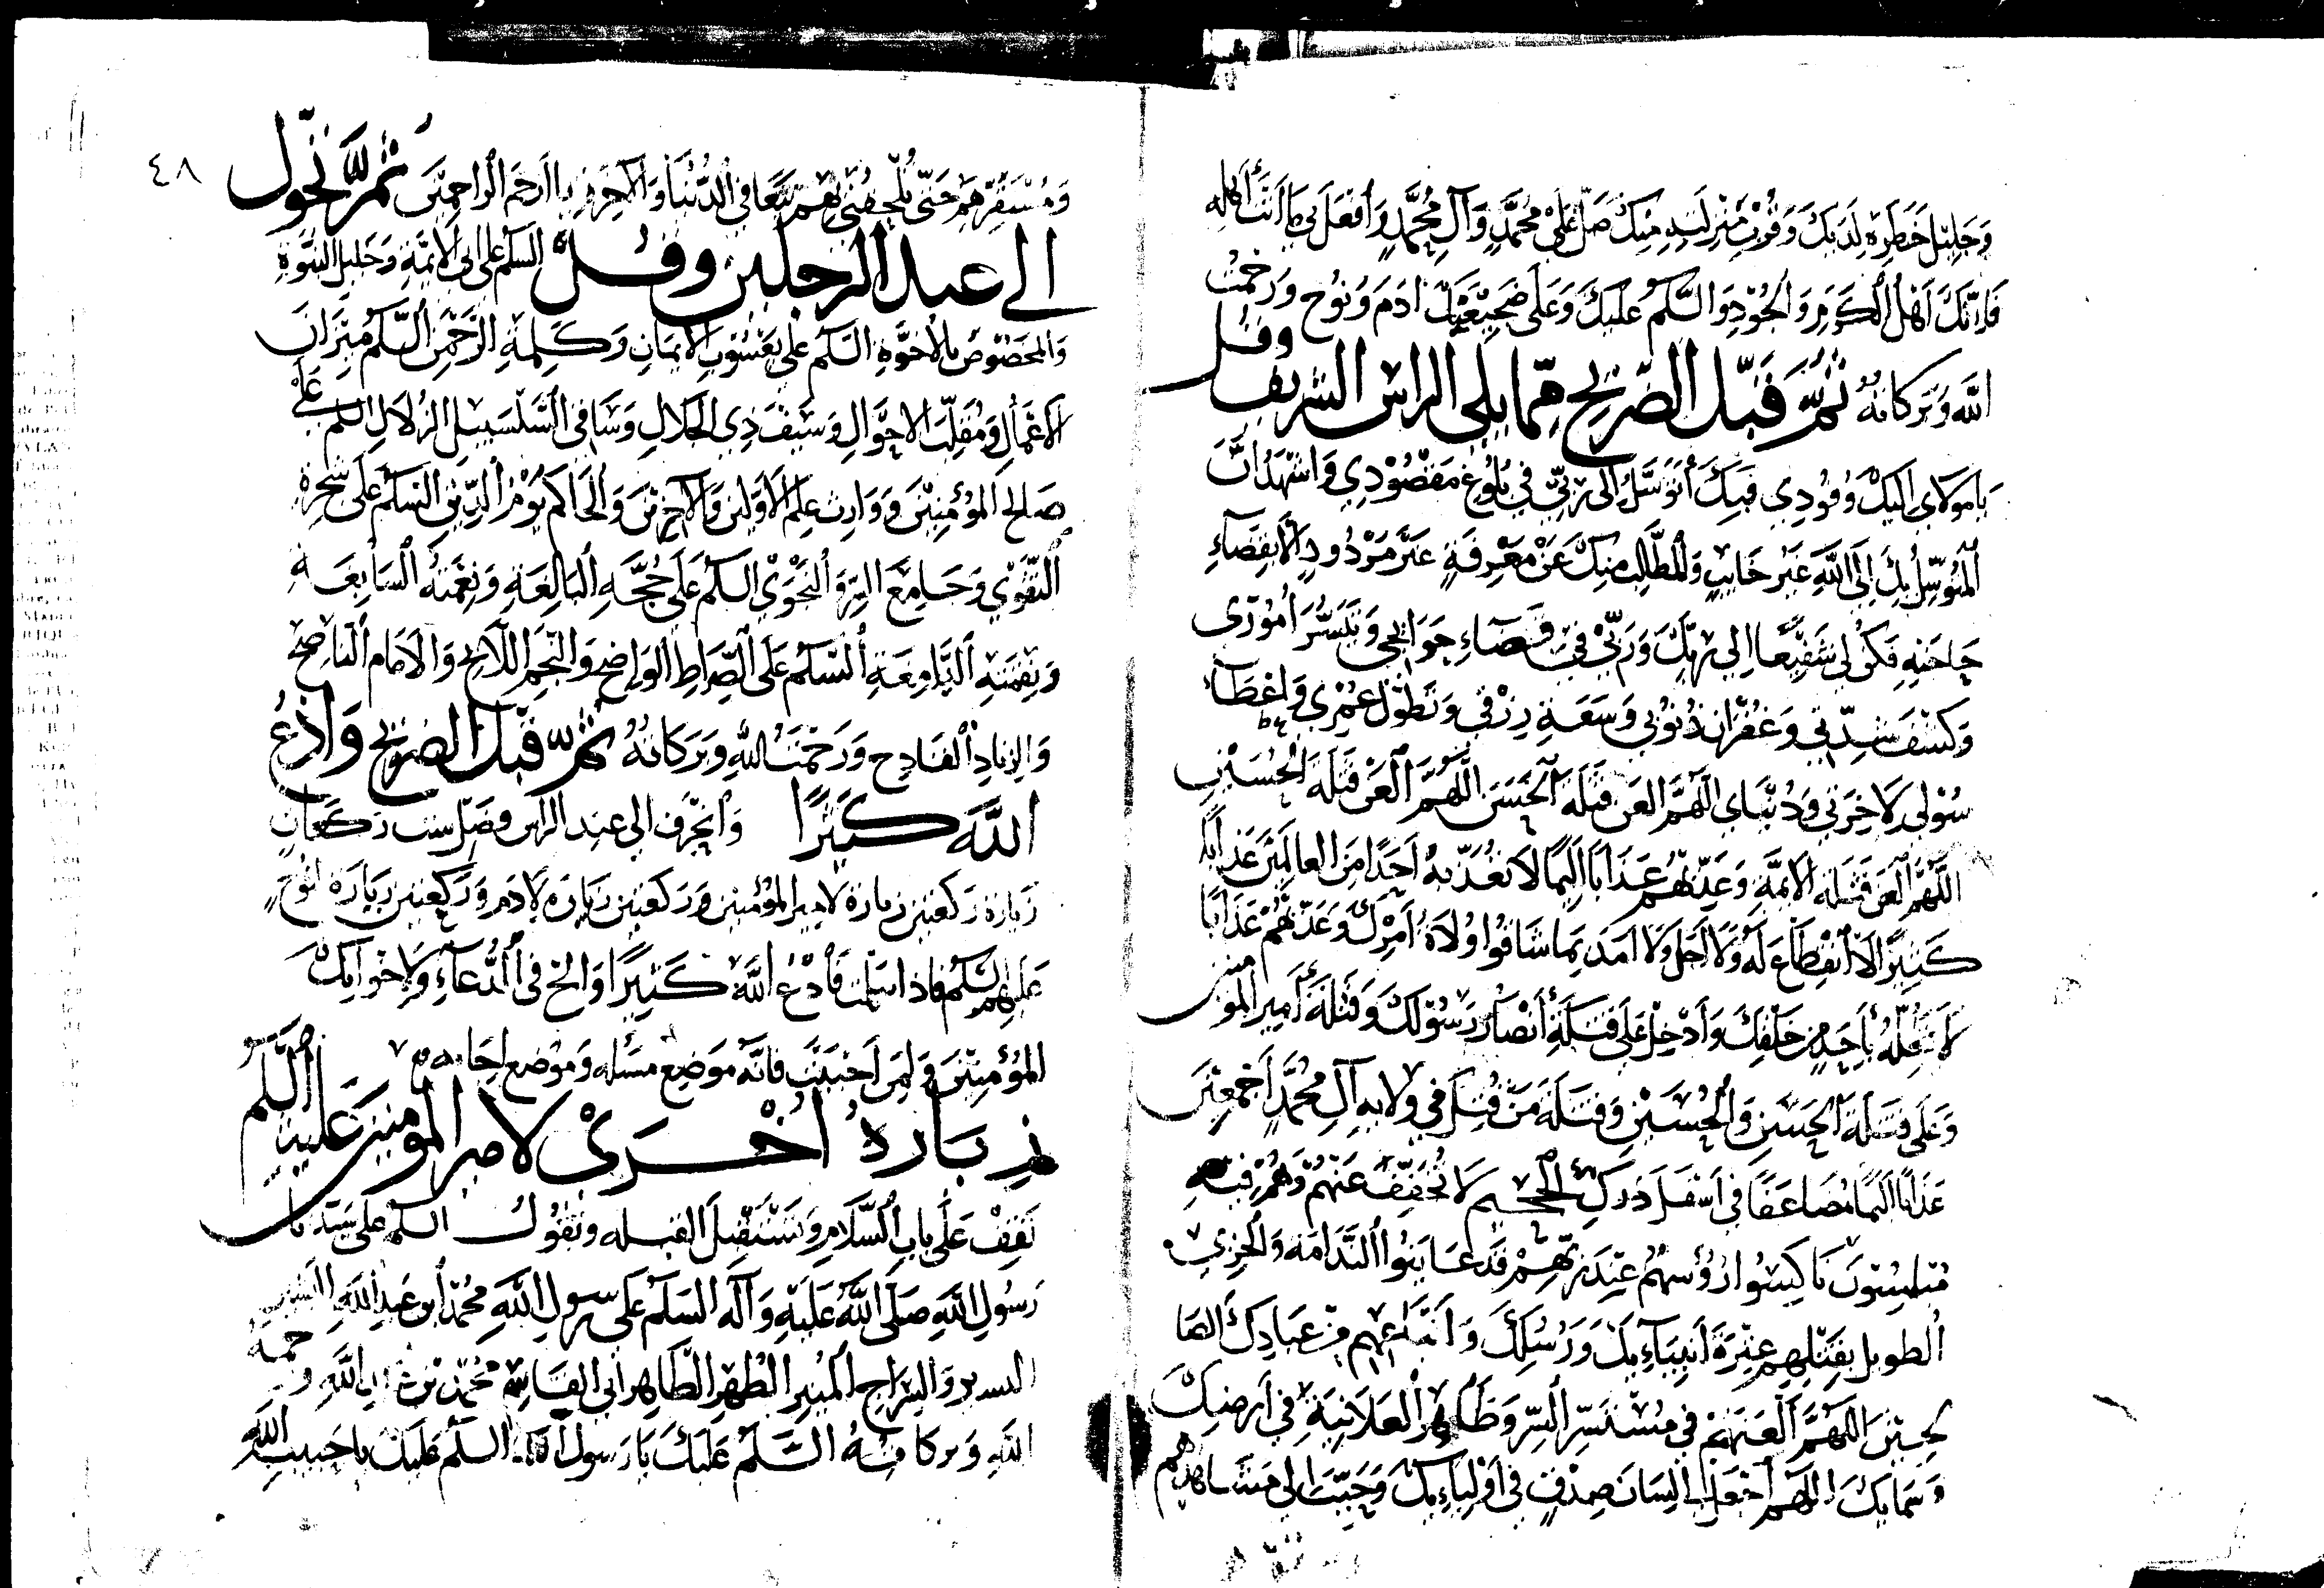 وَجَلِيلِ خَطَرِهِ لَدَيْكَ وَقُرْبِ مَنْزِلَتِهِ مِنْكَ صَلِّ عَلَى مُحَمَّدٍ وَآلِ مُحَمَّدٍ وَافْعَلْ بِي مَا أَنْتَ أَهْلُهُ
فَإِنَّكَ أَهْلُ الْكَرَمِ وَالْجُودِ وَالسَّلَمُ عَلَيْكَ وَعَلَى ضَجِيعَيْكَ آدَمَ وَنُوحٍ وَرَحْمَتُ
اللَّهِ وَبَرَكَاتُهُ ثُمَّ قَبِّل الضَّرِيح مِمَّا يَلِي الراس الشريف وقل
يَا مَوْلَايَ إِلَيْكَ وُفُودِي فَبِكَ أَتَوَسَّلُ إِلَى رَبِّي فِي بُلُوغِ مَقْصُودِي وَأَشْهَدُ أَنَّ
الْمُتَوَسِّلَ بِكَ إِلَى اللَّهِ غَيْرُ خَايِبٍ وَالْمُطَالِبَ مِنْكَ عَنْ مَعْرِفَةٍ غَيْرُ مَرْدُودٍ إِلَّا بِقَضَاءِ
حَاجَتِهِ فَكُنْ لِي شَفِيعًا إِلَى رَبِّكَ وَرَبِّي فِي قَضَاءِ حَوَايِجِي وَتَيَسُّرِ أُمُورِي
وَكَشْفِ شِدَّتِي وَغُفْرَانِ ذُنُوبِي وَسَعَةِ رِزْقِي وَتَطْوِيلِ عُمْرِي وَإِعْطَاءِ
سُؤْلِي لِآخِرَتِي وَدُنْيَايَ اللَّهُمَّ الْعَنْ قَتَلَةَ الْحَسَنِ اللَّهُمَّ الْعَنْ قَتَلَةَ الْحُسَيْنِ
اللَّهُمَّ الْعَنْ قَتَلَةَ الْأَئِمَّةِ وَعَذِّبْهُمْ عَذَابًا أَلِيمًا لَا تُعَذِّبُهُ أَحَدًا مِنَ الْعَالَمِينَ عَذَابًا
كَثِيرًا لَا انْقِطَاعَ لَهُ وَلَا أَجَلَ وَلَا أَمَدَ بِمَا شَاقُّوا وُلَاةَ أَمْرِكَ وَعَذِّبْهُمْ عَذَابًا
لَا تُحِلُّهُ بِأَحَدٍ مِنْ خَلْقِكَ وَأَدْخِلْ عَلَى قَتَلَةِ أَنْصَارِ رَسُولِكَ وَقَتَلَةِ أَمِيرِ الْمُؤْمِنِينَ
وَعَلَى قَتَلَةِ الْحَسَنِ وَالْحُسَيْنِ وَقَتَلَةِ مَنْ قُتِلَ فِي وِلَايَةِ آلِ مُحَمَّدٍ أَجْمَعِينَ
عَذَابًا أَلِيمًا مُضَاعَفًا فِي أَسْفَلِ دَرَكِ الْجَحِيمِ لَا تُخَفِّفْ عَنْهُمْ وَهُمْ فِيهِ
مُبْلِسُونَ نَاكِسُوا رُؤُسِهِمْ عِنْدَ رَبِّهِمْ قَدْ عَايَنُوا النَّدَامَةَ وَالْخِزْيَ
الطَّوِيلَ بِقَتْلِهِمْ عِتْرَةَ أَنْبِيَاءِكَ وَرُسُلِكَ وَأَتْبَاعِهِمْ مِنْ عِبَادِكَ الصَّا
لِحِينَ اللَّهُمَّ الْعَنْهُمْ فِي مُسْتَسِرِّ السِّرِّ وَظَاهِرِ الْعَلَانِيَةِ فِي أَرْضِكَ
وَسَمَائِكَ اللَّهُمَّ اجْعَلْ لِي لِسَانَ صِدْقٍ فِي أَوْلِيَاءِكَ وَحَبِّبْ إِلَيَّ مَشَاهِدَهُمْ
٤٨
وَمُسْتَقَرَّهُمْ حَتَّى تُلْحِقَنِي بِهِمْ تَبَعًا فِي الدُّنْيَا وَالْآخِرَةِ يَا أَرْحَمَ الرَّاحِمِينَ ثُمَّ تَحَوَّل
إلى عند الرجلين وقُل السَّلَمُ عَلَى أَبِي الْأَئِمَّةِ وَخَلِيلِ النُّبُوَّةِ
وَالْمَخْصُوصِ بِالْأُخُوَّةِ السَّلَمُ عَلَى يَعْسُوبِ الْإِيمَانِ وَكَلِمَةِ الرَّحْمَنِ السَّلَمُ عَلَى مِيزَانِ
الْأَعْمَالِ وَمُقَلِّبِ الْأَحْوَالِ وَسَيْفِ ذِي الْجَلَالِ وَسَاقِي السَّلْسَبِيلِ الزُّلَالِ السَّلَمُ عَلَى
صَالِحِ الْمُؤْمِنِينَ وَوَارِثِ عِلْمِ الْأَوَّلِينَ وَالْآخِرِينَ وَالْحَاكِمِ يَوْمَ الدِّينِ السَّلَمُ عَلَى شَجَرَةِ
التَّقْوَى وَسَامِعِ السِّرِّ وَالنَّجْوَى السَّلَمُ عَلَى حُجَّةِ اللَّهِ الْبَالِغَةِ وَنِعْمَتِهِ السَّابِغَةِ
وَنِقْمَتِهِ الدَّامِغَةِ السَّلَمُ عَلَى الصِّرَاطِ الْوَاضِحِ وَالنَّجْمِ اللَّائِحِ وَالْإِمَامِ النَّاصِحِ
وَالزِّنَادِ الْقَادِحِ وَرَحْمَتُ اللَّهِ وَبَرَكَاتُهُ ثُمَّ قَبِّل الضريح وَادْعُ
اللَّهَ كَثِيرًا وَانْحَرِفْ إِلَى عِنْدِ الرَّاسِ وَصَلِّ سِتَّ رَكَعَاتٍ
زِيَارَة رَكْعَتَيْنِ زِيَارَة لِأَمِيرِ الْمُؤْمِنِينَ وَرَكْعَتَيْنِ زِيَارَة لِآدَمَ وَرَكْعَتَيْنِ زِيَارَة لِنُوحٍ
عَلَيْهِمُ السَّلَمُ فَإِذَا سَلَّمْتَ فَادْعُ اللَّهَ كَثِيرًا وَالِحَّ فِي الدُّعَاءِ وَلِإِخْوَانِكَ
الْمُؤْمِنِينَ وَلِمَنْ أَحْبَبْتَ فَإِنَّهُ مَوْضِعُ مَسْئَلَةٍ وَمَوْضِعُ إِجَابَةٍ
زِيَارَةٌ أُخْرَى لِأَمِيرِ الْمُؤْمِنِينَ عَلَيْهِ السَّلَمُ
تَقِفُ عَلَى بَابِ السَّلَامِ وَتَسْتَقْبِلُ الْقِبْلَةَ وَتَقُولُ السَّلَمُ عَلَى سَيِّدِنَا
رَسُولِ اللَّهِ صَلَّى اللَّهُ عَلَيْهِ وَآلِهِ السَّلَمُ عَلَى رَسُولِ اللَّهِ مُحَمَّدِ ابْنِ عَبْدِ اللَّهِ الْبَشِيرِ
النذير وَالسِّرَاجِ الْمُنِيرِ الطُّهْرِ الطَّاهِرِ أَبِي الْقَاسِمِ مُحَمَّدِ بْنِ عَبْدِ اللَّهِ وَرَحْمَةُ
اللَّهِ وَبَرَكَاتُهُ السَّلَمُ عَلَيْكَ يَا رَسُولَ اللَّهِ السَّلَمُ عَلَيْكَ يَا حَبِيبَ اللَّهِ